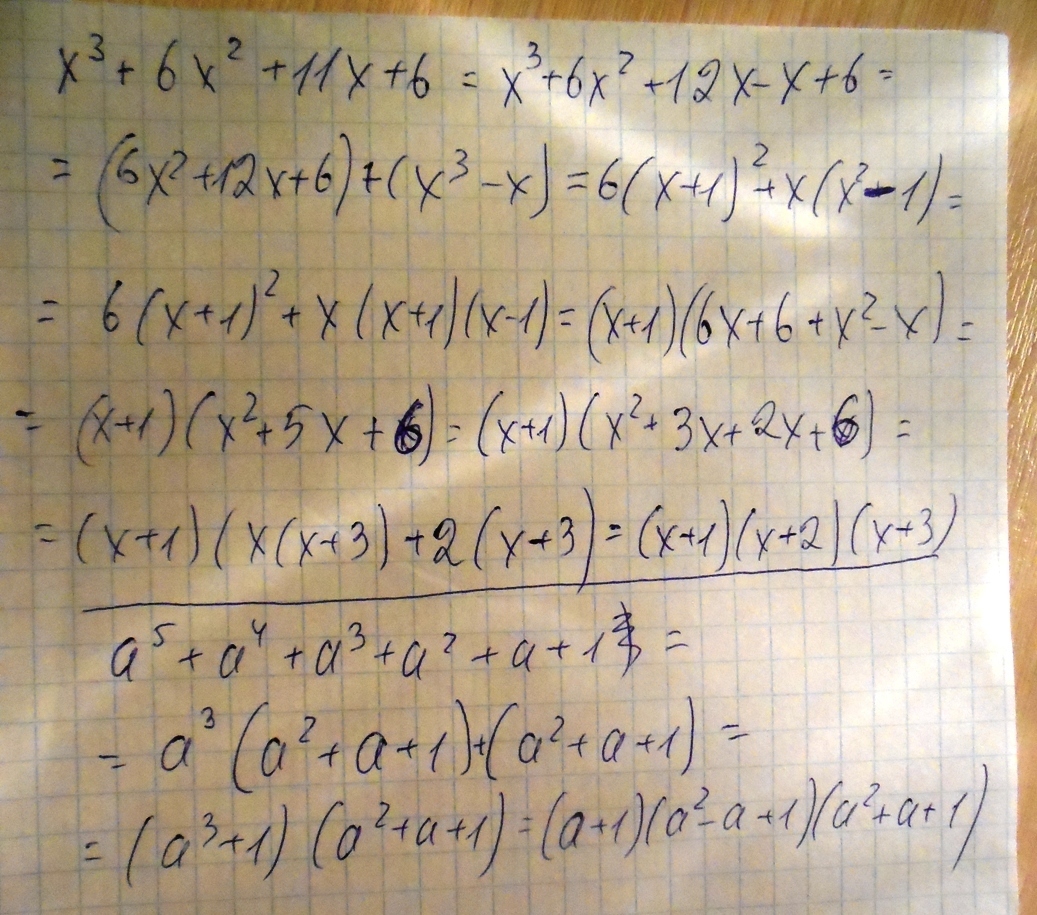 x³ + 6x² + 11x + 6 = x³ + 6x² + 12x - x + 6 =
= (6x² + 12x + 6) + (x³ - x) = 6(x+1)² + x(x² - 1) =
= 6(x+1)² + x(x+1)(x-1) = (x+1)(6x + 6 + x² - x) =
= (x+1)(x² + 5x + 6) = (x+1)(x² + 3x + 2x + 6) =
= (x+1)(x(x+3) + 2(x+3) = (x+1)(x+2)(x+3)
a⁵ + a⁴ + a³ + a² + a + 1 =
= a³(a² + a + 1) + (a² + a + 1) =
= (a³ + 1)(a² + a + 1) = (a+1)(a² - a + 1)(a² + a + 1)